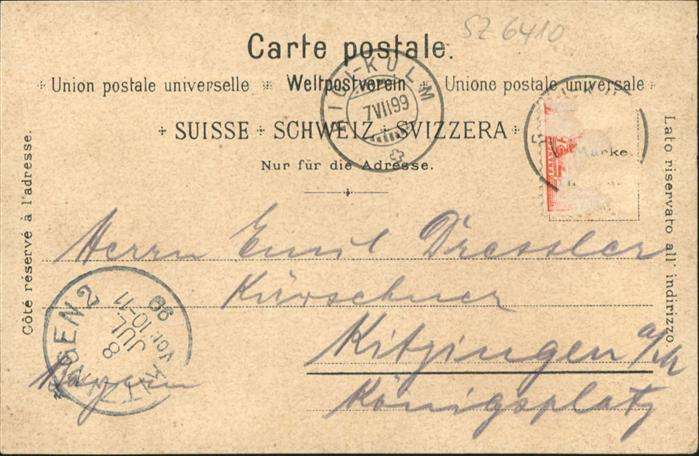 SZ 6410
Carte postale.
Union postale universelle Weltpostverein Unione postale universale
SUISSE SCHWEIZ SVIZZERA
Nur für die Adresse.
RIGI-KULM
7 VII 99
Marke
Côté réservé à l'adresse.
Lato riservato all' indirizzo.
Herrn Emil Dressler
Kürschner
Kitzingen a/M
Königsplatz
Bayern
KITZINGEN 2
8 JUL
Vor. 10-11
99